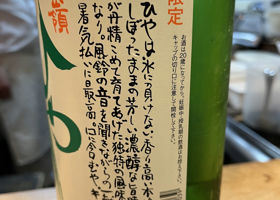 限定
ひやは氷に負けない、香り高い本
しぼったままの芳しい濃醇な旨味
が丹精こめて育てあげた独特の風味
なり。風鈴の音を聞きながらの一
暑気払いに最高。口に今日もや
お酒は20歳になってから。妊娠中・授乳期の飲酒はお控えください。
キャップの切り口に注意して開栓して下さい。
嶺